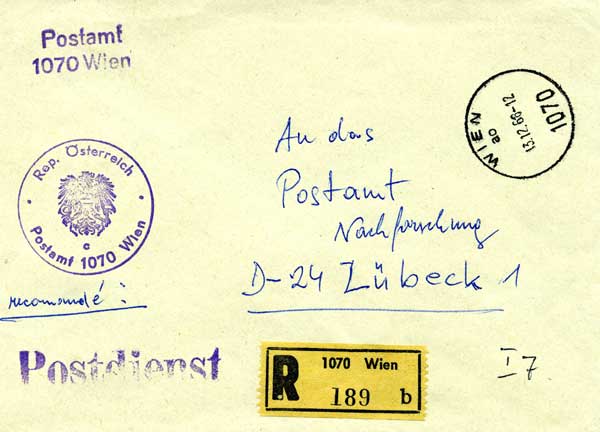 Postamt
1070 Wien
WIEN
1070
ao
13.12.66-12
Rep. Österreich
Postamt 1070 Wien
c
An das
Postamt
Nachforschung
D-24 Lübeck 1
recomandé:
Postdienst
R
1070 Wien
189 b
I 7